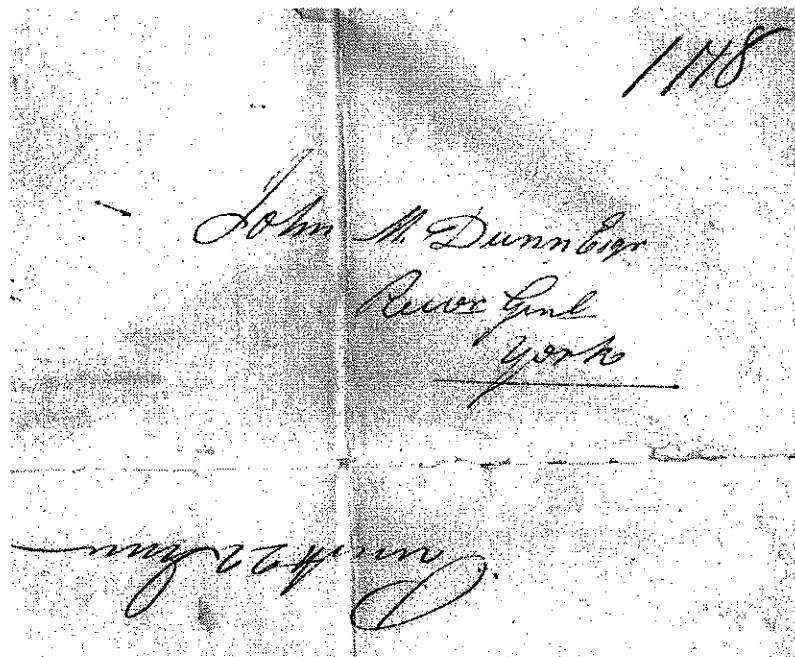 1178
John H. Dunn Esqr
Recvr Genl
York
22